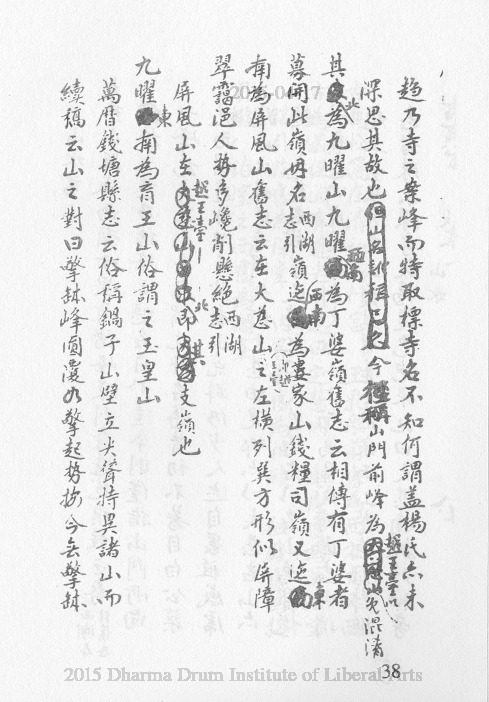 趨乃寺之案峰而特取標寺名不知何謂蓋楊氏亦未
深思其故也今山門前峰為越王臺以免混淆
其北為九曜山九曜西南為丁婆嶺舊志云相傳有丁婆者
募開此嶺因名西湖志引嶺迤西南為婁家山錢糧司嶺又迤東
南為屏風山舊志云在大慈山即越王臺之左橫列巽方形似屏障
翠靄浥人勢多巉削懸絕西湖志引
屏風山在越王臺北其支嶺也
九曜東南為育王山俗謂之玉皇山
萬曆錢塘縣志云俗稱鍋子山壁立火聳特異諸山而
續稿云山之對曰擎缽峰圓覆如擎起勢按今無擎缽
38
2015 Dharma Drum Institute of Liberal Arts